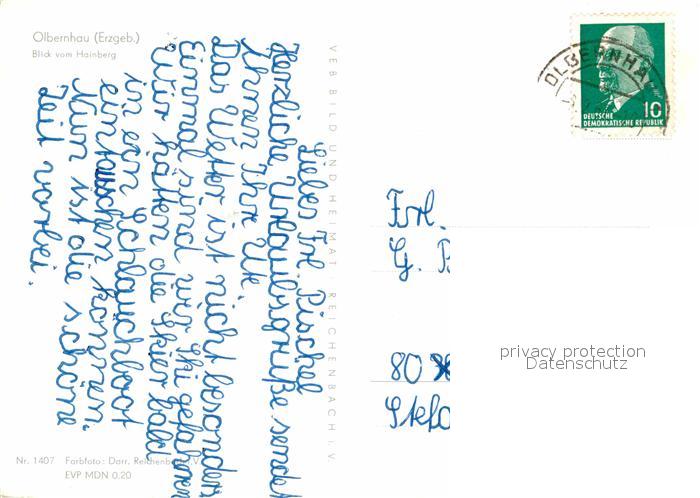 Olbernhau (Erzgeb.)
Blick vom Hainberg
OLBERNHA
10
DEUTSCHE
DEMOKRATISCHE REPUBLIK
Liebes Frl. Püschel
Herzliche Urlaubsgrüße sendet
Ihnen Ihr Uk.
Das Wetter ist nicht besonders
Einmal sind wir Ski gefahren
Wir hätten die Skier bald
in ein Schlauchboot
eintauschen können.
Nun ist die schöne
Zeit vorbei.
VEB BILD UND HEIMAT, REICHENBACH i. V.
Frl.
G.
80
privacy protection
Datenschutz
Nr. 1407 Farbfoto: Darr, Reichenbach i. V.
EVP MDN 0.20